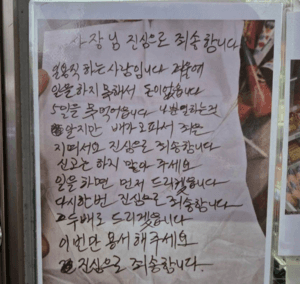 사장님 진심으로 죄송합니다
일용직 하는 사람입니다
일을 하지 못해서 돈이 없습니다
5일을 못먹었습니다 나쁜일 하는것
알지만 배가 고파서
진심으로 죄송합니다
신고는 하지 말아 주세요
일을 하면 먼저 드리겠습니다
다시한번 진심으로 죄송합니다
두배로 드리겠습니다
이번만 용서해주세요
진심으로 죄송합니다.